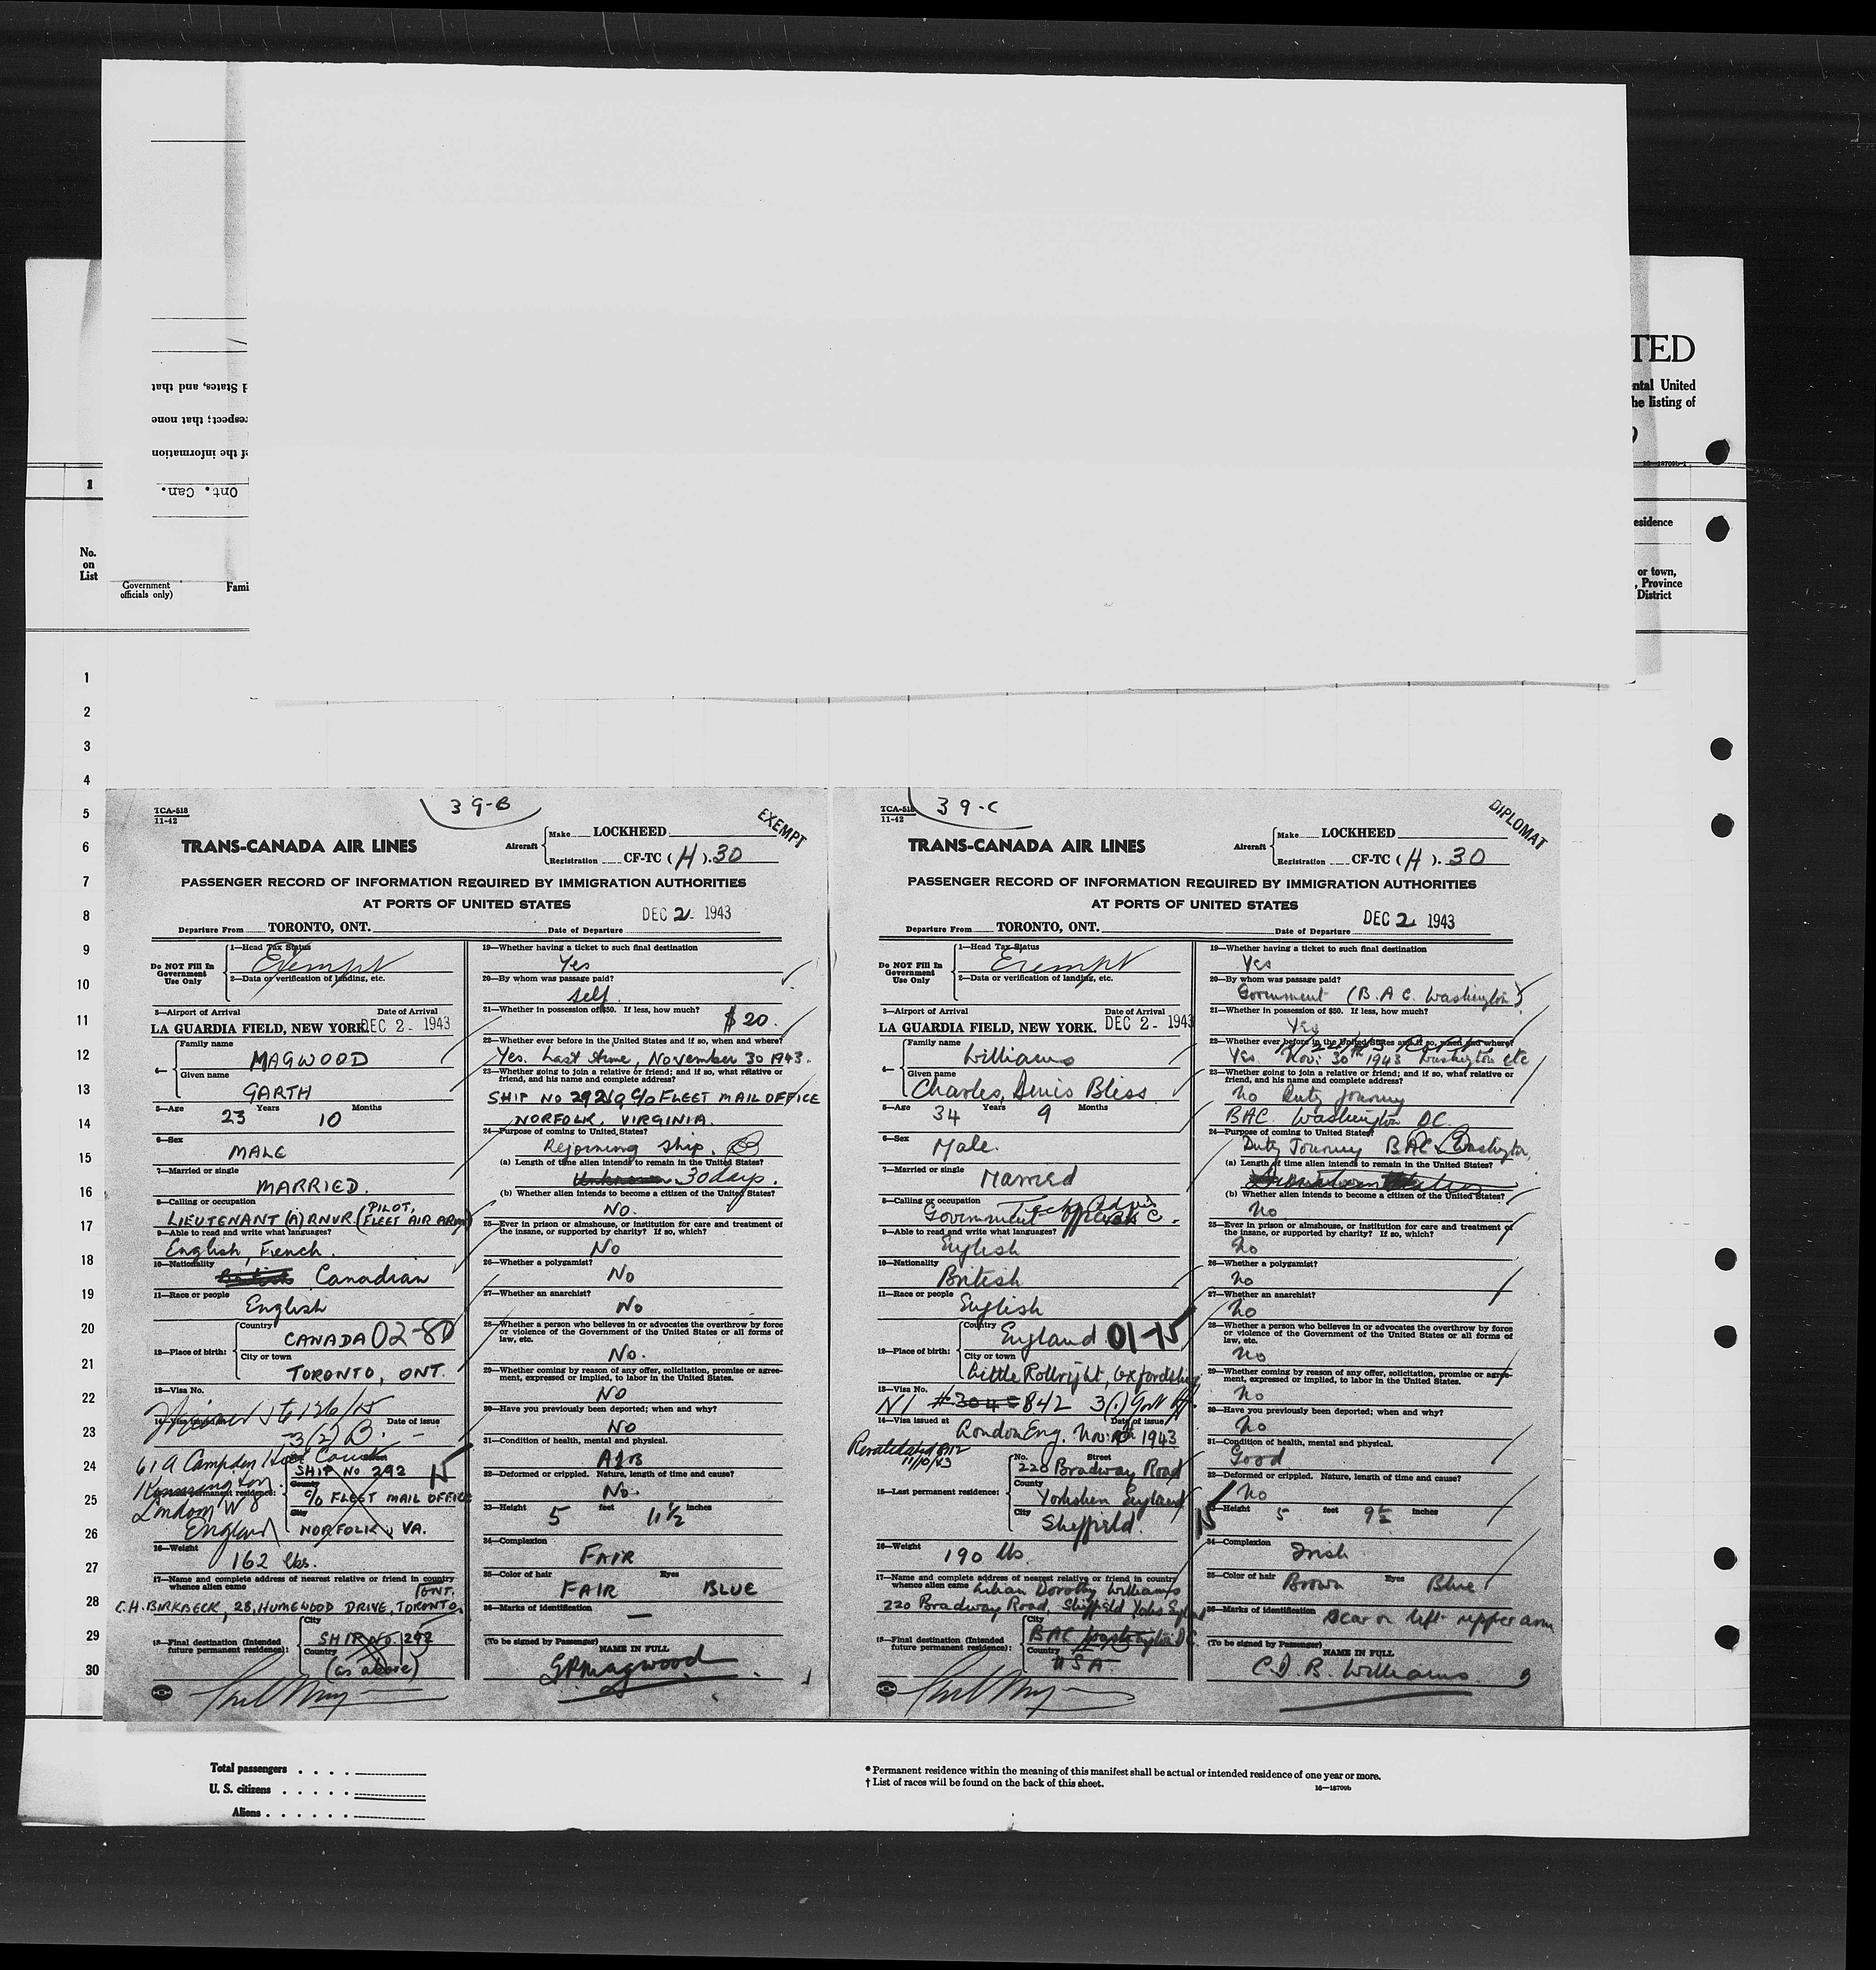 TED
d States, and that
ntal United
he listing of
respect; that none
of the information
16—18709b-1
1
Ont. Can.
esidence
No.
on
List
or town,
, Province
District
Government
officials only)
Fami
1
2
3
4
5
6
7
8
9
10
11
12
13
14
15
16
17
18
19
20
21
22
23
24
25
26
27
28
29
30
39-B
TCA-518
11-42
EXEMPT
TRANS-CANADA AIR LINES
Aircraft
Make LOCKHEED
Registration CF-TC (H).30
PASSENGER RECORD OF INFORMATION REQUIRED BY IMMIGRATION AUTHORITIES
AT PORTS OF UNITED STATES
DEC 2 - 1943
Departure From TORONTO, ONT. Date of Departure
Do NOT Fill In
Government
Use Only
1—Head Tax Status
Exempt
2—Data or verification of landing, etc.
3—Airport of Arrival Date of Arrival
LA GUARDIA FIELD, NEW YORK. DEC 2 - 1943
4—
Family name
MAGWOOD
Given name
GARTH
5—Age 23 Years 10 Months
6—Sex
MALE
7—Married or single
MARRIED.
8—Calling or occupation
LIEUTENANT (A) RNVR (PILOT, FLEET AIR ARM)
9—Able to read and write what languages?
English, French.
10—Nationality
British Canadian
11—Race or people
English
12—Place of birth:
Country
CANADA 02-80
City or town
TORONTO, ONT.
13—Visa No.
14—Visa issued at Date of issue
3(2) B. -
61A Campden Hill Court
Kensington
London W8
England
permanent residence:
SHIP No 292 15
County
c/o FLEET MAIL OFFICE
City
NORFOLK, VA.
16—Weight
162 lbs.
17—Name and complete address of nearest relative or friend in country
whence alien came
ONT.
C.H. BIRKBECK, 28, HUMEWOOD DRIVE, TORONTO,
18—Final destination (Intended
future permanent residence):
City
SHIP No. 292
Country
(as above)
19—Whether having a ticket to such final destination
Yes
20—By whom was passage paid?
Self.
21—Whether in possession of $50. If less, how much?
$20.
22—Whether ever before in the United States and if so, when and where?
Yes. Last time, November 30 1943.
23—Whether going to join a relative or friend; and if so, what relative or
friend, and his name and complete address?
SHIP No 292 c/o FLEET MAIL OFFICE
NORFOLK, VIRGINIA.
24—Purpose of coming to United States?
Rejoining ship.
(a) Length of time alien intends to remain in the United States?
Unknown 30 days.
(b) Whether alien intends to become a citizen of the United States?
No.
25—Ever in prison or almshouse, or institution for care and treatment of
the insane, or supported by charity? If so, which?
No
26—Whether a polygamist?
No
27—Whether an anarchist?
No
28—Whether a person who believes in or advocates the overthrow by force
or violence of the Government of the United States or all forms of
law, etc.
No.
29—Whether coming by reason of any offer, solicitation, promise or agree-
ment, expressed or implied, to labor in the United States.
NO
30—Have you previously been deported; when and why?
No
31—Condition of health, mental and physical.
32—Deformed or crippled. Nature, length of time and cause?
No.
33—Height 5 feet 11½ inches
34—Complexion
FAIR
35—Color of hair Eyes
FAIR BLUE
36—Marks of identification
—
(To be signed by Passenger)
NAME IN FULL
GPMagwood
39-C
TCA-518
11-42
DIPLOMAT
TRANS-CANADA AIR LINES
Aircraft
Make LOCKHEED
Registration CF-TC (H). 30
PASSENGER RECORD OF INFORMATION REQUIRED BY IMMIGRATION AUTHORITIES
AT PORTS OF UNITED STATES
DEC 2 1943
Departure From TORONTO, ONT. Date of Departure
Do NOT Fill In
Government
Use Only
1—Head Tax Status
Exempt
2—Data or verification of landing, etc.
3—Airport of Arrival Date of Arrival
LA GUARDIA FIELD, NEW YORK. DEC 2 - 1943
4—
Family name
Williams
Given name
Charles, Denis Bliss
5—Age 34 Years 9 Months
6—Sex
Male.
7—Married or single
Married
8—Calling or occupation
Government
9—Able to read and write what languages?
English
10—Nationality
British
11—Race or people
English
12—Place of birth:
Country
England 01-15
City or town
Little Rollright, Oxfordshire
13—Visa No.
NI #304 = 842 3(1) Govt Off
14—Visa issued at Date of issue
London Eng. Nov: 1943
Revalidated
11/10/43
15—Last permanent residence:
No. Street
220 Bradway Road
County
Yorkshire England
City
Sheffield.
16—Weight
190 lbs
17—Name and complete address of nearest relative or friend in country
whence alien came Lilian Dorothy Williams
220 Bradway Road, Sheffield Yorks England
18—Final destination (Intended
future permanent residence):
City
BAC Washington D.C.
Country
USA
19—Whether having a ticket to such final destination
Yes
20—By whom was passage paid?
Government (B.A.C. Washington)
21—Whether in possession of $50. If less, how much?
Yes
22—Whether ever before in the United States and if so, when and where?
Yes. Nov: 30th 1943 Washington etc
23—Whether going to join a relative or friend; and if so, what relative or
friend, and his name and complete address?
No Duty Journey
BAC Washington DC.
24—Purpose of coming to United States?
Duty Journey BAC Washington,
(a) Length of time alien intends to remain in the United States?
(b) Whether alien intends to become a citizen of the United States?
No
25—Ever in prison or almshouse, or institution for care and treatment of
the insane, or supported by charity? If so, which?
No
26—Whether a polygamist?
No
27—Whether an anarchist?
No
28—Whether a person who believes in or advocates the overthrow by force
or violence of the Government of the United States or all forms of
law, etc.
No
29—Whether coming by reason of any offer, solicitation, promise or agree-
ment, expressed or implied, to labor in the United States.
No
30—Have you previously been deported; when and why?
No
31—Condition of health, mental and physical.
Good
32—Deformed or crippled. Nature, length of time and cause?
No
15
33—Height 5 feet 9½ inches
34—Complexion
Fresh
35—Color of hair Brown Eyes Blue
36—Marks of identification Scar on left upper arm
(To be signed by Passenger)
NAME IN FULL
C.D.B. Williams.
Total passengers . . . .
U. S. citizens . . . . .
Aliens . . . . . .
* Permanent residence within the meaning of this manifest shall be actual or intended residence of one year or more.
† List of races will be found on the back of this sheet.
16—18709b